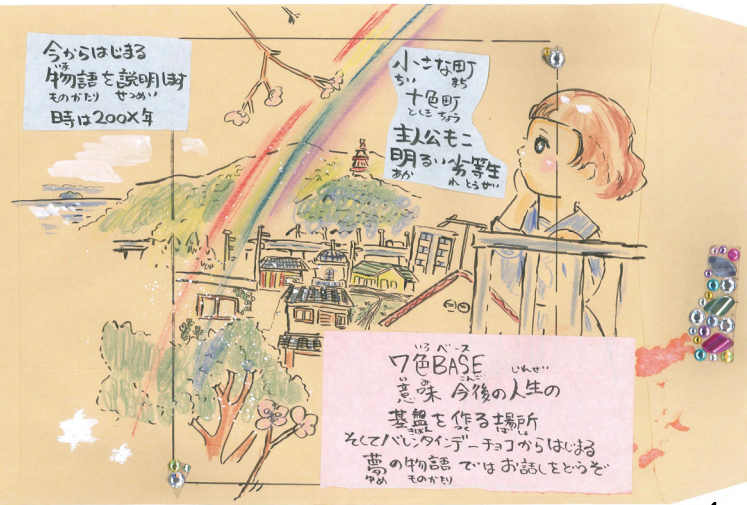 今からはじまる
いま
物語を説明します
ものがたり せつめい
時は200X年
小さな町
ちい まち
十色町
ちょう
主人公もこ
明るい劣等生
あか れっとうせい
いろ ベース
7色BASE
いみ こんご じんせい
意味 今後の人生の
基盤を作る場所
きばん つく ばしょ
そしてバレンタインデーチョコからはじまる
夢の物語 ではお話しをどうぞ
ゆめ ものがたり